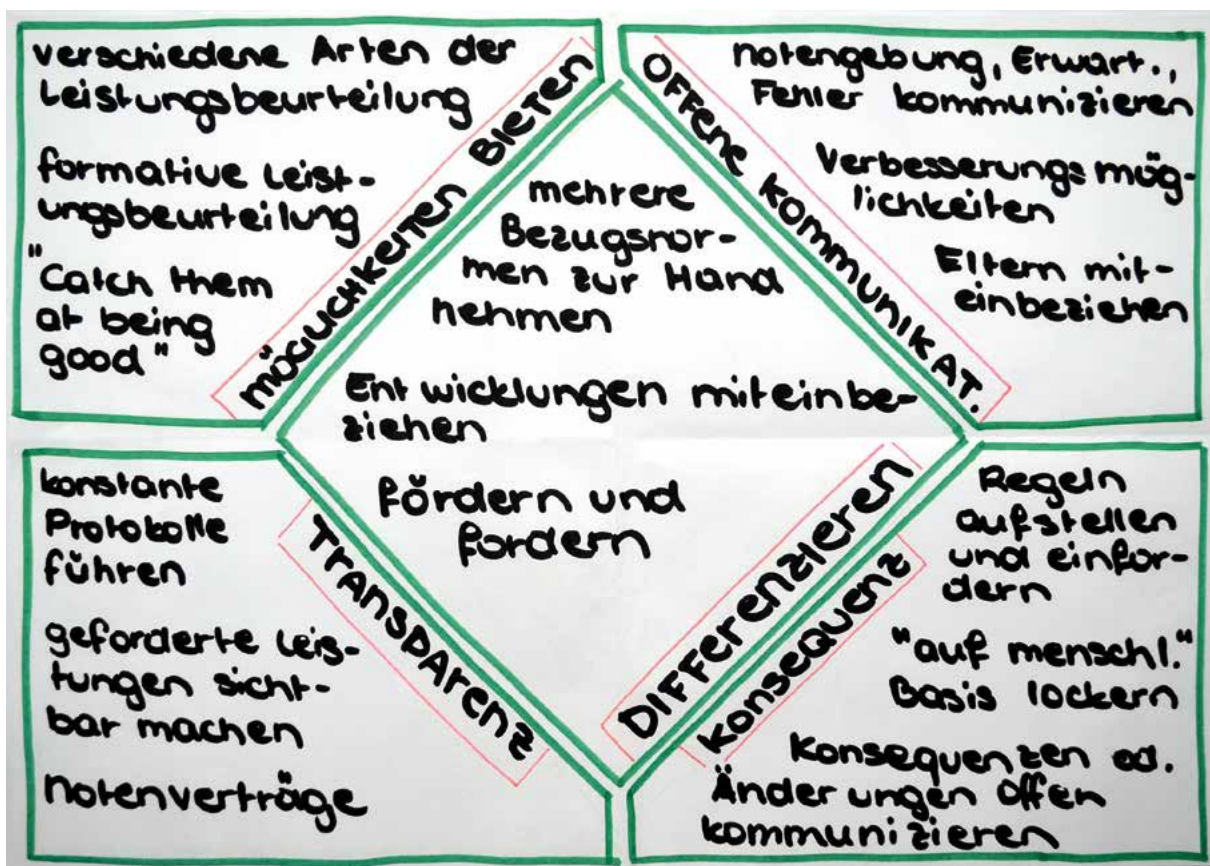 verschiedene Arten der
Leistungsbeurteilung
formative Leist-
ungsbeurteilung
"Catch them
at being
good"
MÖGLICHKEITEN BIETEN
OFFENE KOMMUNIKAT.
Notengebung, Erwart.,
Fehler kommunizieren
Verbesserungsmög-
lichkeiten
Eltern mit-
einbeziehen
mehrere
Bezugsnor-
men zur Hand
nehmen
Entwicklungen miteinbe-
ziehen
fördern und
fordern
DIFFERENZIEREN
konstante
Protokolle
führen
geforderte Leis-
tungen sicht-
bar machen
Notenverträge
TRANSPARENZ
KONSEQUENZ
Regeln
aufstellen
und einfor-
dern
"auf menschl."
Basis lockern
Konsequenzen od.
Änderungen offen
kommunizieren